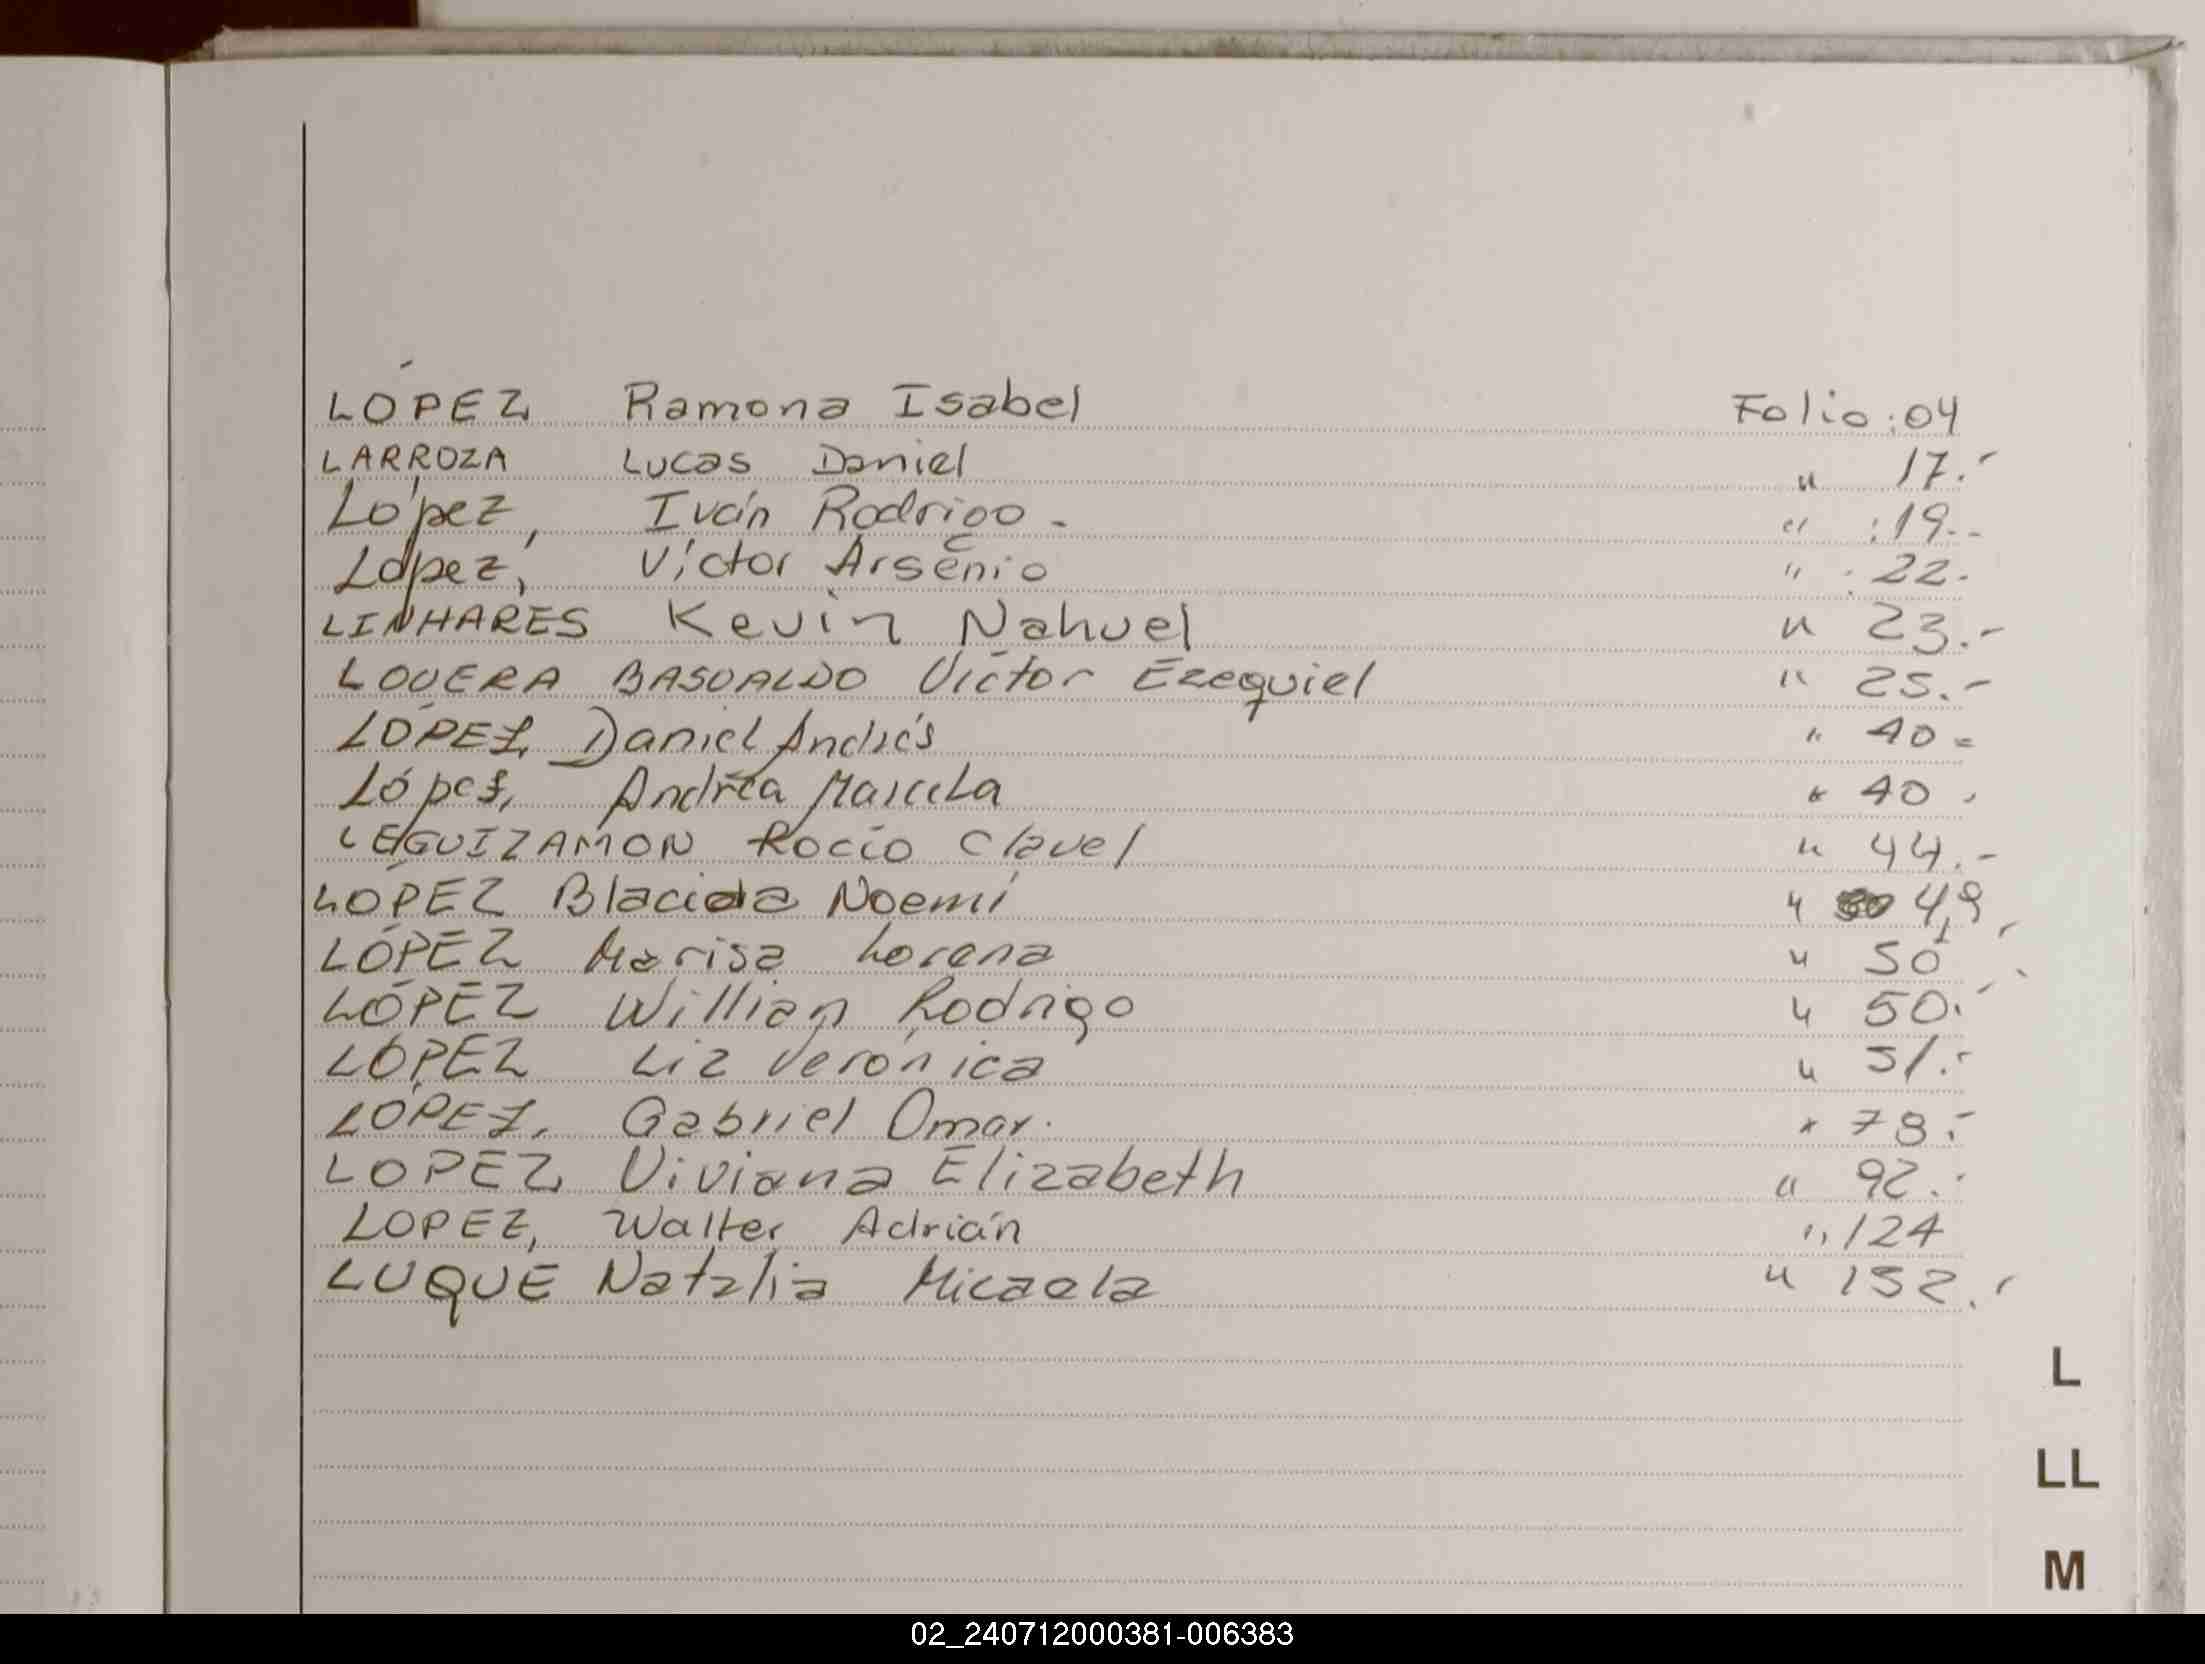 LÓPEZ Ramona Isabel Folio: 04
LARROZA Lucas Daniel " 17.-
López, Iván Rodrigo. " :19.-
López, Víctor Arsenio " : 22.
LINHARES Kevin Nahuel " 23.-
LOVERA BASUALDO Víctor Ezequiel " 25.-
LÓPEZ, Daniel Andrés " 40=
López, Andrea Marcela " 40.
LEGUIZAMÓN Rocío Clavel " 44.-
LÓPEZ Blacida Noemí " 49
LÓPEZ Marisa Lorena " 50
LÓPEZ Willian Rodrigo " 50.-
LÓPEZ Liz Verónica " 51.-
LÓPEZ, Gabriel Omar. " 78.-
LOPEZ, Viviana Elizabeth " 92.-
LOPEZ, Walter Adrián " 124
LUQUE Natalia Micaela " 152.-
L
LL
M
02_240712000381-006383